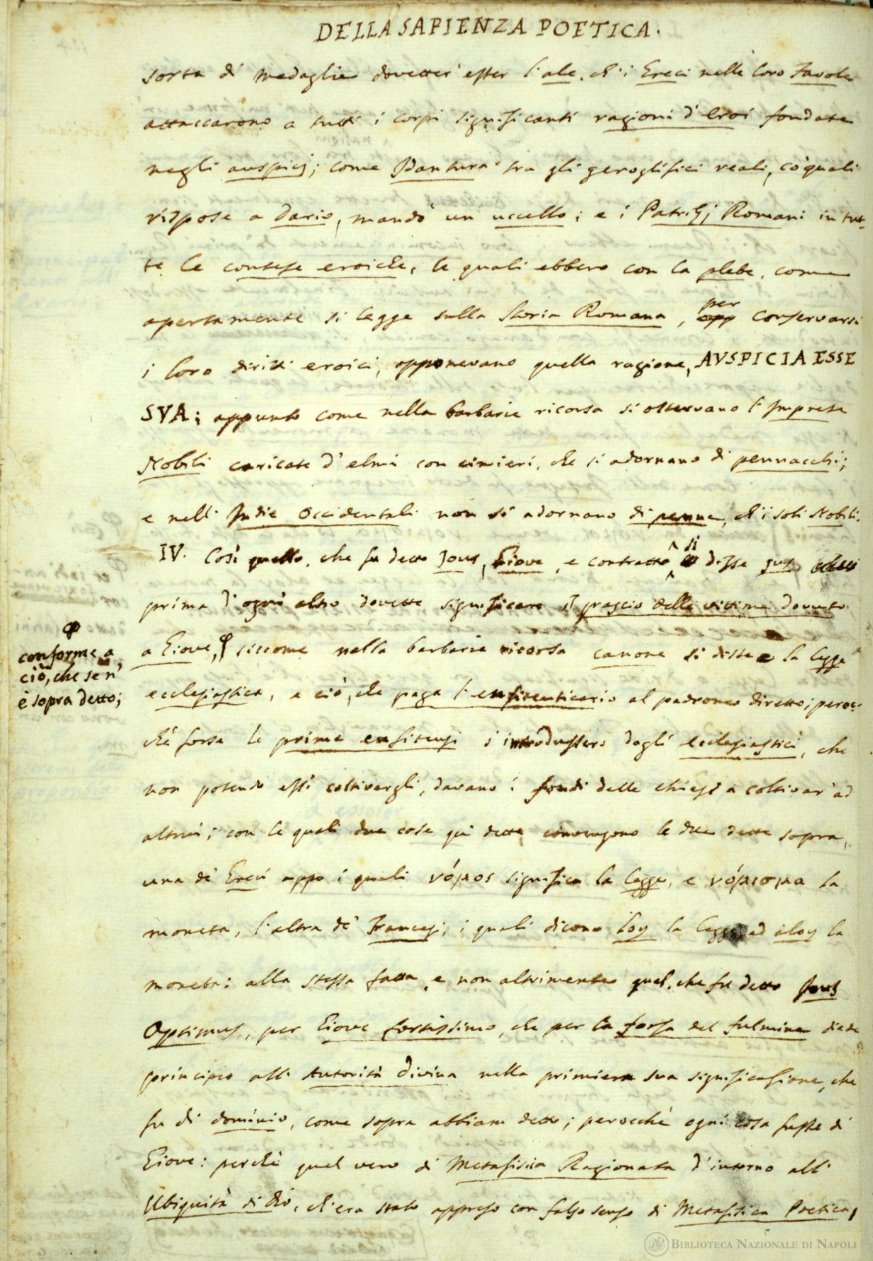 DELLA SAPIENZA POETICA.
sorta di medaglie dovetter' esser l'ale, ch'i Greci nelle loro Favole
attaccarono a tutti i corpi significanti ragioni d'Eroi fondate
negli auspicj; come Idantura tra gli geroglifici reali, co' quali
rispose a Dario, mandò un uccello; e i Patrizj Romani in tut-
te le contese eroiche, le quali ebbero con la plebe, come
apertamente si legge sulla Storia Romana, per conservarsi
i loro diritti eroici, opponevano quella ragione, AVSPICIA ESSE
SVA; appunto come nella barbarie ricorsa si osservano l'Imprese
Nobili caricate d'elmi con cimieri, che si adornano di pennacchi;
e nell' Indie Occidentali non si adornano di penne, ch'i soli Nobili.
IV. Così quello, che fu detto Jous, Giove, e contratto si disse jus
prima d'ogni altro dovette significare il grascio delle vittime dovuto
a Giove, φ siccome nella barbarie ricorsa canone si disse e la legge
φ
conforme a
ciò, che se n'
è sopra detto;
ecclesiastica, e ciò, che paga l'enfiteuticario al padrone diretto; peroc-
chè forse le prime enfiteusi s'introdussero dagli ecclesiastici, che
non potendo essi coltivargli, davano i fondi delle chiese a coltivar' ad
altrui; con le quali due cose qui dette convengono le due dette sopra,
una de' Greci appo i quali νόμος significa la legge, e νόμισμα la
moneta, l'altra de' Francesi, i quali dicono loy la legge ed aloy la
moneta: alla stessa fatta, e non altrimente quel, che fu detto Jous
Optimus, per Giove fortissimo, che per la forza del fulmine diede
principio all' Autorità divina nella primiera sua significazione, che
fu di dominio, come sopra abbiam detto; perocchè ogni cosa fusse di
Giove: perchè quel vero di Metafisica Ragionata d'intorno all'
Ubiquità di Dio, ch'era stato appreso con falso senso di Metafisica Poetica,
BIBLIOTECA NAZIONALE DI NAPOLI